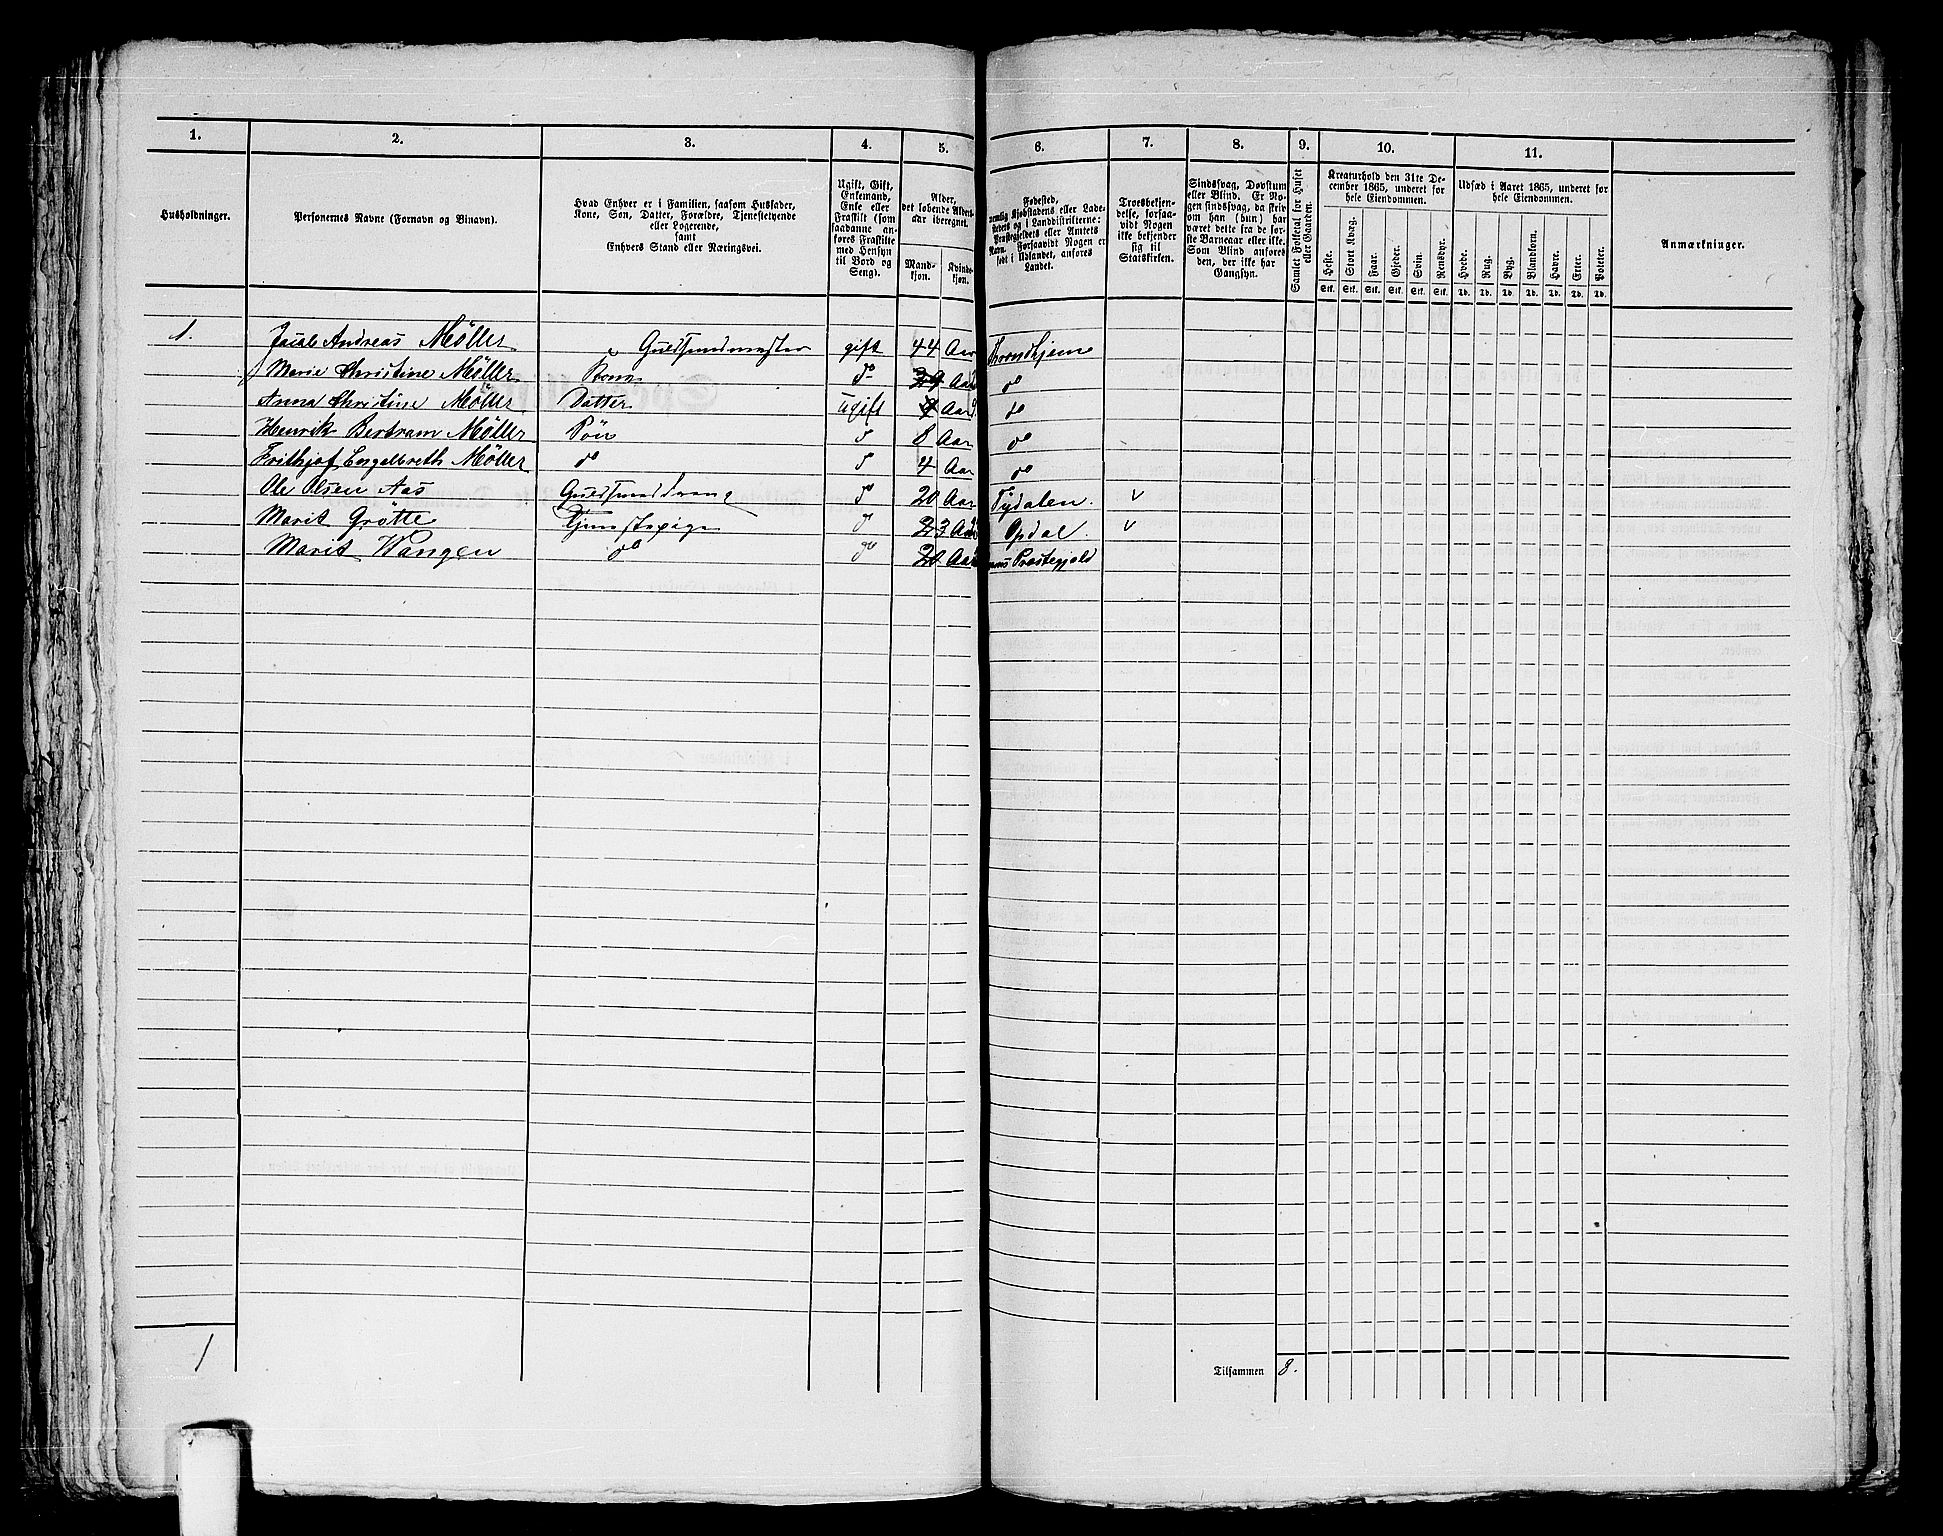 1. 2. 3. 4. 5. 6. 7. 8. 9. 10. 11.
Husholdninger.
Personernes Navne (Fornavn og Binavn).
Hvad Enhver er i Familien, saasom Husfader,
Kone, Søn, Datter, Forældre, Tjenestetyende
eller Logerende,
samt
Enhvers Stand eller Næringsvei.
Ugift, Gift,
Enkemand,
Enke eller
Fraskilt (som
saadanne an-
føres Fraskilte
med Hensyn
til Bord og
Seng).
Alder,
det løbende Alders-
aar iberegnet.
Mand-
kjøn.
Kvinde-
kjøn.
Fødested,
nemlig Kjøbstadens eller Lade-
stedets og i Landdistrikterne:
Præstegjeldets eller Amtets
Navn. Forsaavidt Nogen er
født i Udlandet, anføres
Landet.
Troesbekjen-
delse, forsaa-
vidt Nogen
ikke bekjender
sig til
Statskirken.
Sindssvag, Døvstum
eller Blind. Er No-
gen sindssvag, da skriv
om han (hun) har
været dette fra de før-
ste Barneaar eller ikke.
Som Blind anføres
den, der ikke har
Gangsyn.
Samlet Folketal for Huset
eller Gaarden.
Kreaturhold den 31te De-
cember 1865, underet for
hele Eiendommen.
Heste. Stort Kvæg. Faar. Gjeder. Svin. Rensdyr.
Stk. Stk. Stk. Stk. Stk. Stk.
Udsæd i Aaret 1865, underet for
hele Eiendommen.
Hvede. Rug. Byg. Blandkorn. Havre. Erter. Poteter.
Td. Td. Td. Td. Td. Td. Td.
Anmærkninger.
1. Jacob Andreas Möller Guldsmedmester gift 44 Aar Throndhjem
Marie Christine Möller Kone do 29 Aar do
Anna Christine Möller Datter ugift 9 Aar do
Henrik Bertram Möller Sön do 8 Aar do
Frithjof Engelbreth Möller do do 4 Aar do
Ole Olsen Aas Guldsmeddreng do 20 Aar Tydalen.
Marit Grötte Tjenestepige do 23 Aar Opdal
Marit Wangen do do 20 Aar Præstegjeld
1
Tilsammen 8.